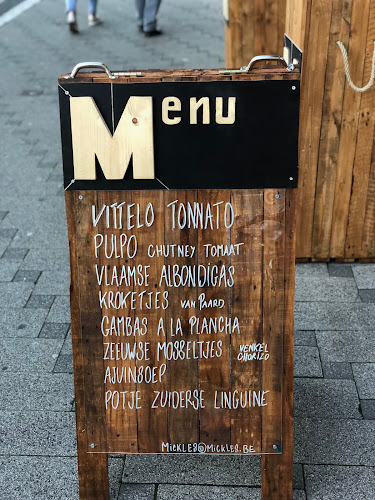 Menu
VITTELO TONNATO
PULPO CHUTNEY TOMAAT
VLAAMSE ALBONDIGAS
KROKETJES VAN PAARD
GAMBAS A LA PLANCHA
ZEEUWSE MOSSELTJES VENKEL CHORIZO
AJUINSOEP
POTJE ZUIDERSE LINGUINE
MICKLES@MICKLES.BE